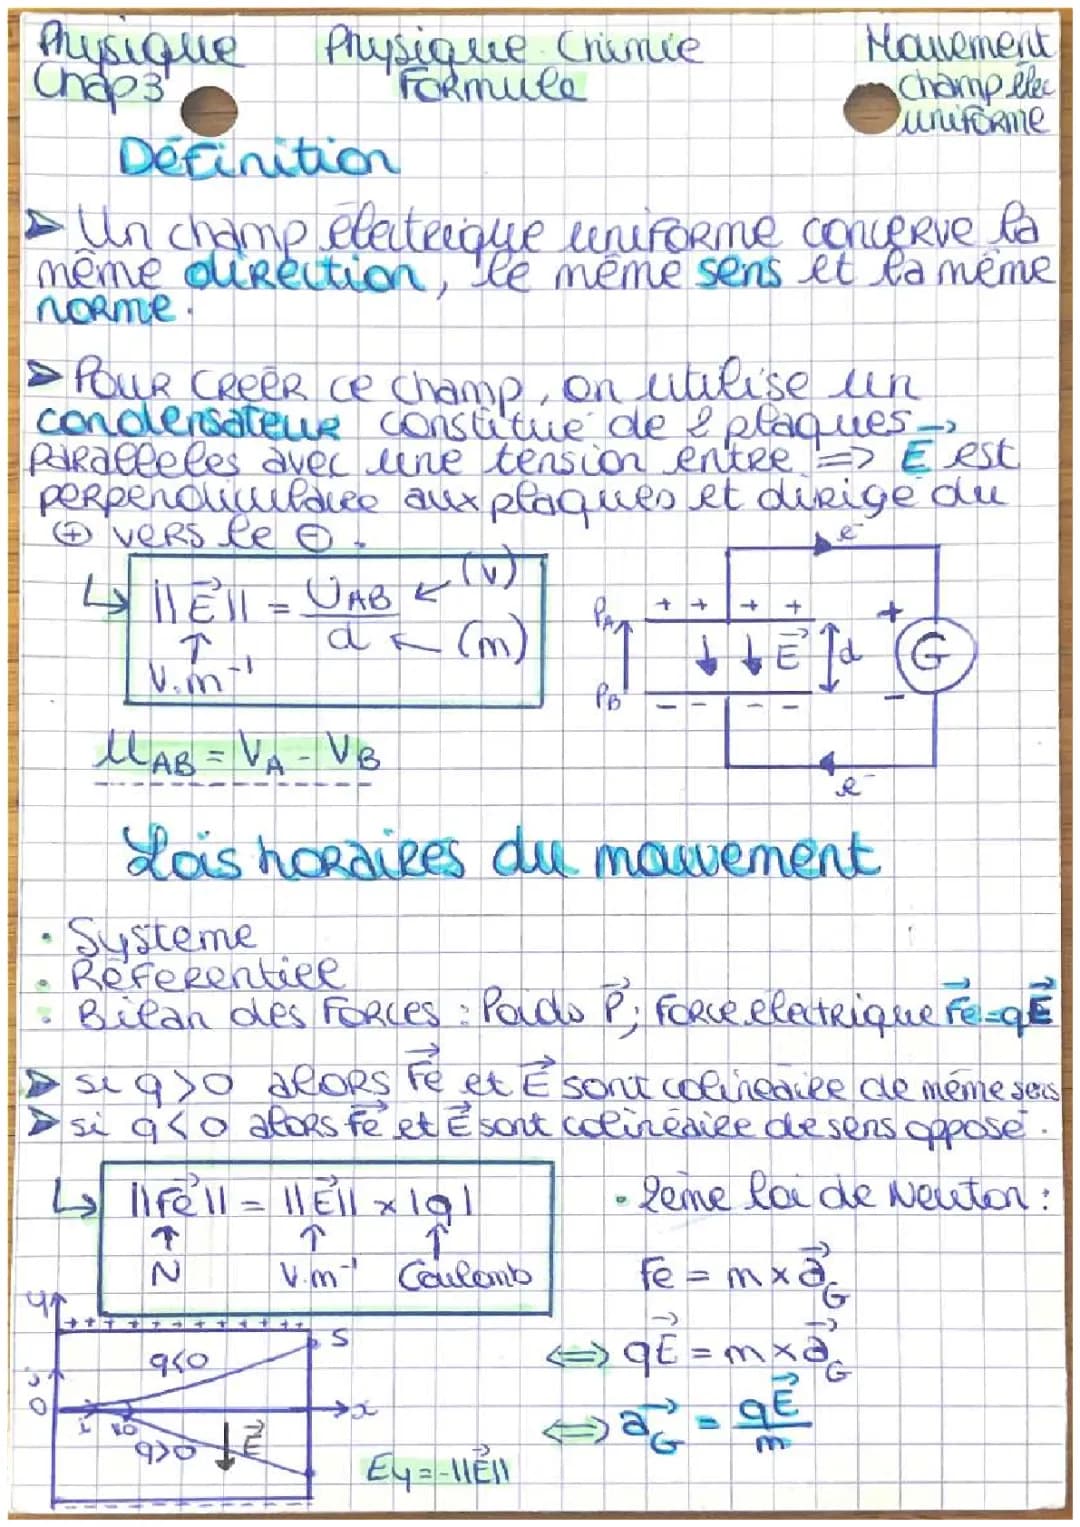 Physique Physique Chimie Mouvement
Chap 3 Formule champ élec
uniforme
Définition
➤ Un champ électrique uniforme concerve la
même direction, le même sens et la même
norme.
➤ Pour créer ce champ, on utilise un
condensateur constitué de 2 plaques
parallèles avec une tension entre => E⃗ est
perpendiculaire aux plaques et dirigé du
⊕ vers le ⊖.
↳ ||E⃗|| = U_AB / d ← (V) ← (m)
↑
V.m⁻¹
e⁻
P_A + + + + +
↓ ↓ E⃗ d G
P_B - - - - -
e⁻
U_AB = V_A - V_B
Lois horaires du mouvement
• Système
• Référentiel
• Bilan des Forces : Poids P⃗; Force électrique F⃗e=qE⃗
➤ si q>0 alors F⃗e et E⃗ sont colinéaire de même sens
➤ si q<0 alors F⃗e et E⃗ sont colinéaire de sens opposé.
↳ ||F⃗e|| = ||E⃗|| × |q|
↑ ↑ ↑
N V.m⁻¹ Coulomb
• 2ème loi de Newton :
Fe = m × a⃗_G
⇔ qE⃗ = m × a⃗_G
⇔ a⃗_G = qE⃗ / m
y + + + + + + + + + + +
q<0 S
j
O x
i
q>0 E⃗
Ey = -||E⃗||